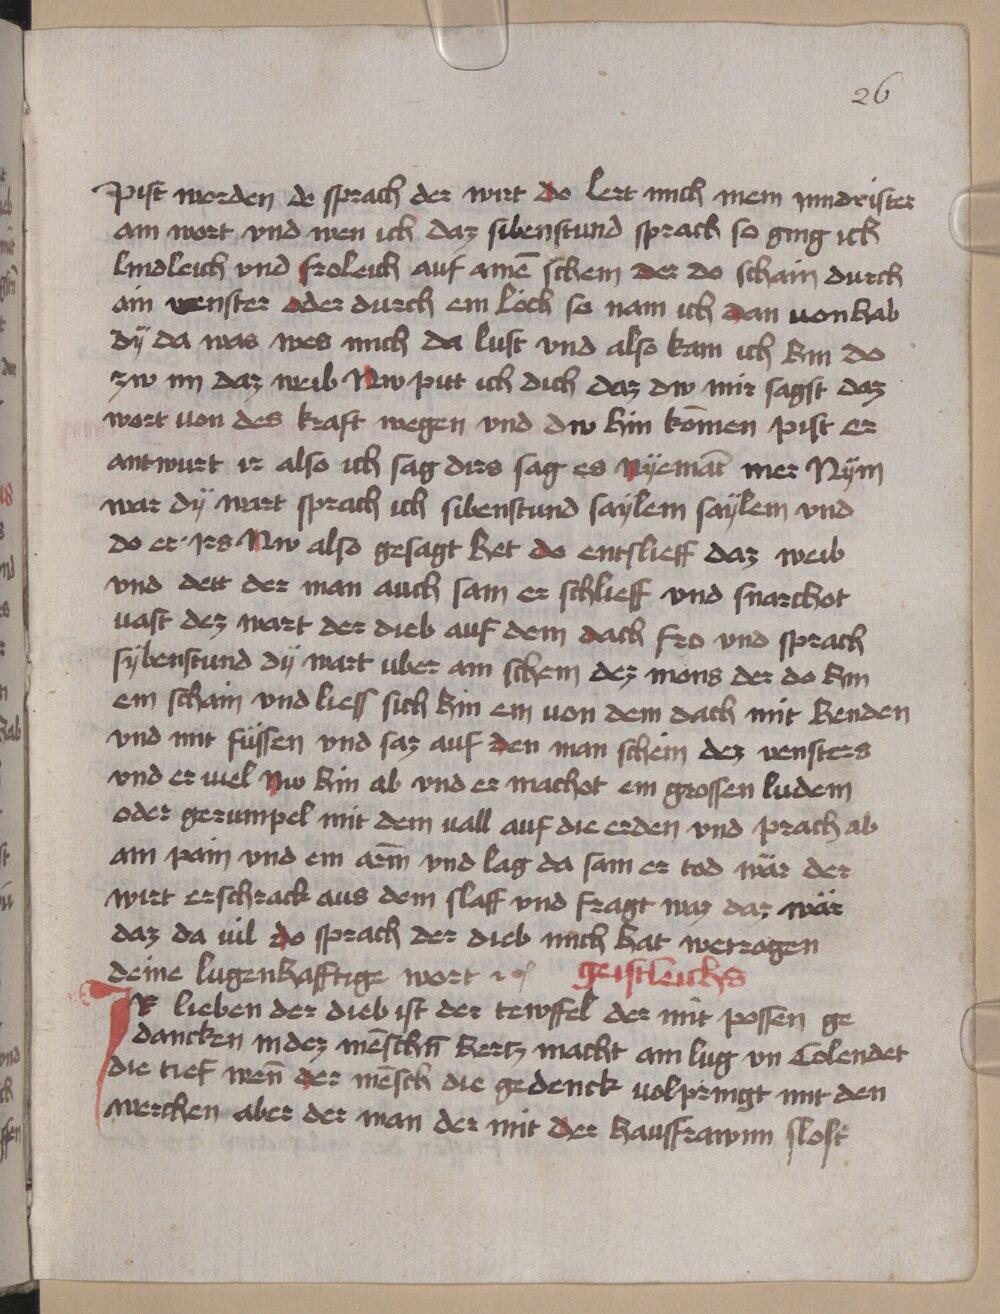 26
Pist worden do sprach der wirt do lert mich mein mindrister
ain wort vnd wen ich daz sibenstund sprach so ging ich
lindleich vnd froleich auf ainē schein der do schain durch
ain venster oder durch ein loch so nam ich dan von hab
dÿ da was wes mich da lust vnd also kam ich hin do
zw in daz weib Nw pitt ich dich daz dw mir sagst daz
wort von des kraft wegen vnd dw hin kōmen pist er
antwurt ir also ich sag dirs sag es nÿemāt mer Nÿm
war dÿ wart sprach ich sibenstund saylem saÿlem vnd
do er irs Nw also gesagt het do entslieff daz weib
vnd dett der man auch sam er schlieff vnd snarchot
vast dez wart der dieb auf dem dach fro vnd sprach
sybenstund dÿ wart uber ain schein dez mons der do hin
ein schain vnd liess sich hin ein von dem dach mit henden
vnd mit füssen vnd saz auf den man schein dez vensters
vnd er viel nw hin ab vnd er machot ein grossen ludem
oder gerumpel mit dem vall auf die erden vnd prach ab
ain pain vnd ein arm vnd lag da sam er tod wär der
wirt erschrack aus dem slaff vnd fragt waz daz wär
daz da vil do sprach der dieb mich hat wetrogen
deine lugenhafftige wort geistleichs
IR lieben der dieb ist der tewffel der mit possen ge
dancken in dez mēschn̄ hertz macht ain lug vn
die tief wen̄ der mēsch die gedenck volpringt mit den
werchen aber der man der mit der hausfrawnn sloft